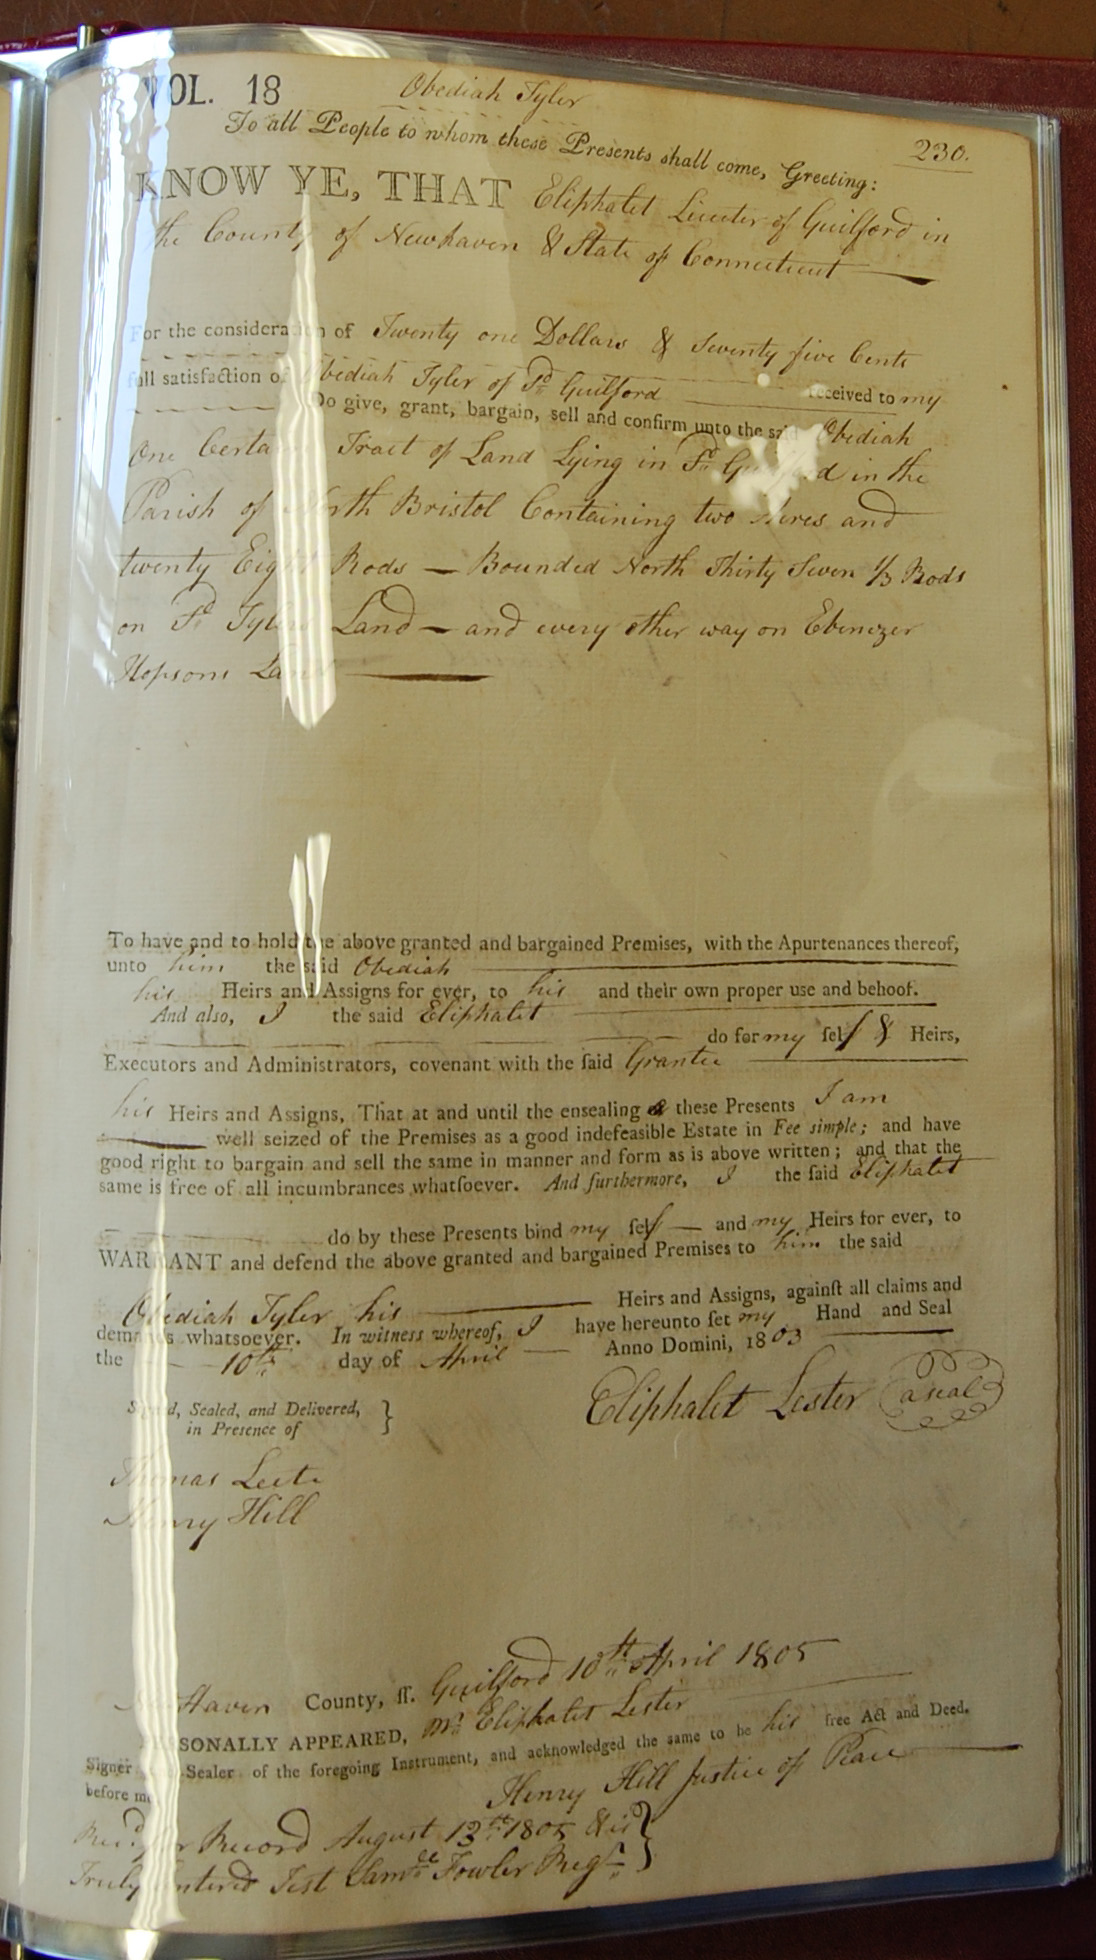 VOL. 18
Obediah Tyler
230.
To all People to whom these Presents shall come, Greeting:
KNOW YE, THAT Eliphalet of Guilford in
the County of Newhaven & State of Connecticut
For the consideration of Twenty one Dollars & Seventy five Cents
received to my
full satisfaction of Obediah Tyler of Sd Guilford
Do give, grant, bargain, sell and confirm unto the said Obediah
One Certain Tract of Land Lying in Sd Guilford in the
Parish of North Bristol Containing two Acres and
twenty Eight Rods — Bounded North Thirty Seven 1/3 Rods
on Sd Tylers Land — and every other way on Ebenezer
Hopsons Land
To have and to hold the above granted and bargained Premises, with the Apurtenances thereof,
unto him the said Obediah
his Heirs and Assigns for ever, to his and their own proper use and behoof.
And also, I the said Eliphalet
do for my ſelf & Heirs,
Executors and Administrators, covenant with the ſaid Grantee
his Heirs and Assigns, That at and until the ensealing of these Presents I am
well seized of the Premises as a good indefeasible Estate in Fee simple; and have
good right to bargain and sell the same in manner and form as is above written; and that the
same is free of all incumbrances whatſoever. And furthermore, I the ſaid Eliphalet
do by these Presents bind my ſelf — and my Heirs for ever, to
WARRANT and defend the above granted and bargained Premises to him the said
Obediah Tyler his Heirs and Assigns, againſt all claims and
demands whatsoever. In witness whereof, I have hereunto ſet my Hand and Seal
the 10th day of April Anno Domini, 1803
Signed, Sealed, and Delivered,
in Presence of
Eliphalet Lester a seal
Thomas Leete
Henry Hill
New Haven County, ſſ. Guilford 10th April 1805
PERSONALLY APPEARED, Mr Eliphalet Lester
Signer and Sealer of the foregoing Instrument, and acknowledged the same to be his free Act and Deed.
before me
Henry Hill Justice of Peace
Recd for Record August 13th 1805 & is
Truly Entered Test Samll Fowler Regr